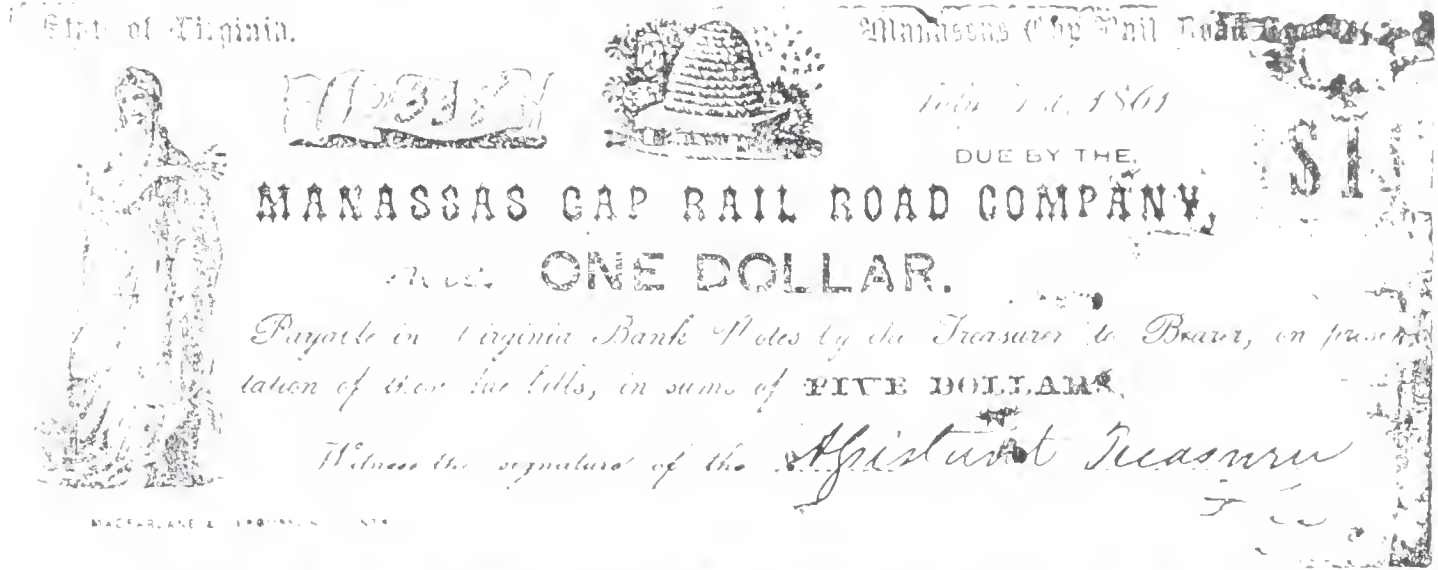 State of Virginia.
Manassas Gap Rail Road
1861
$1
DUE BY THE,
MANASSAS GAP RAIL ROAD COMPANY,
ONE DOLLAR.
Payable in Virginia Bank Notes by the Treasurer to Bearer, on presen-
tation of these due bills, in sums of FIVE DOLLARS.
Witness the signature of the Assistant Treasurer
MACFARLANE & FERGUSSON